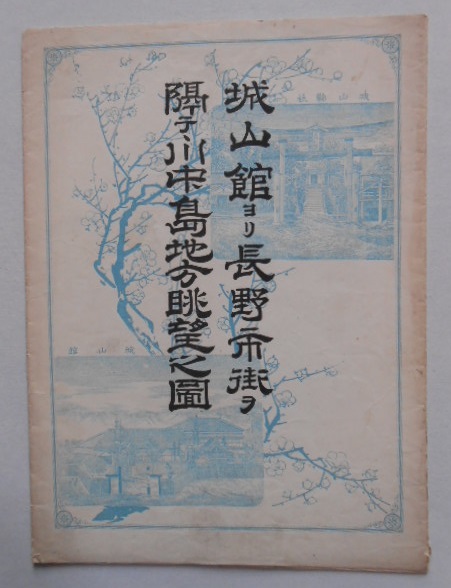 城山館ヨリ長野市街ヲ
隔テ川中島地方眺望之圖
城山館